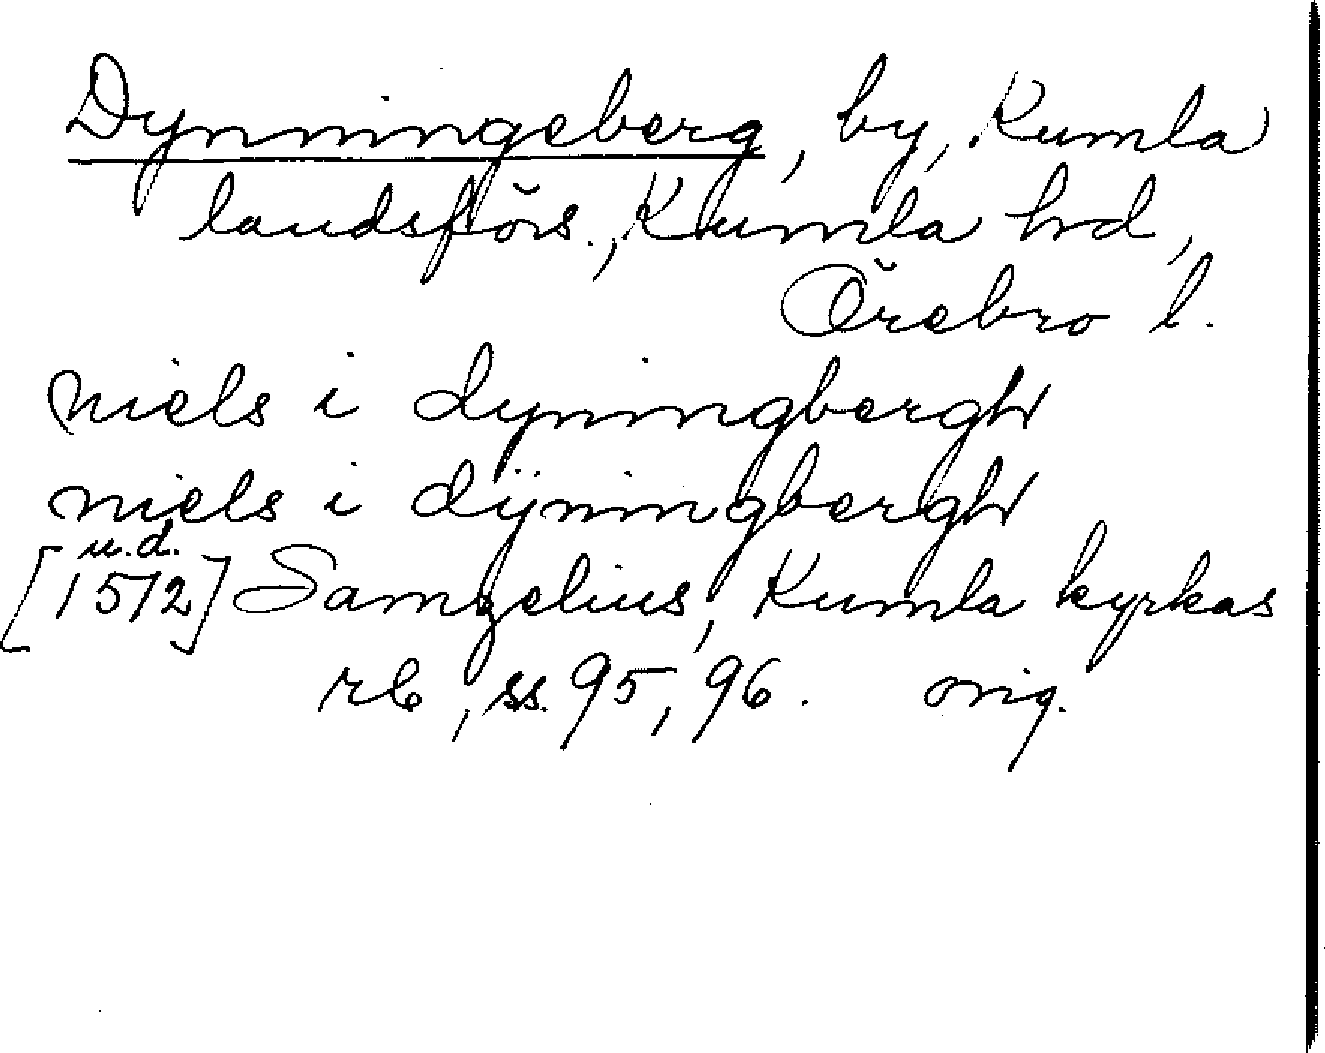 Dynningeberg, by, Kumla
landsförs., Kumla hd,
Örebro l.
niels i dyningbergh
niels i dÿningbergh
u.d.
[1572] Samzelius, Kumla kyrkas
rb, ss. 95, 96. orig.